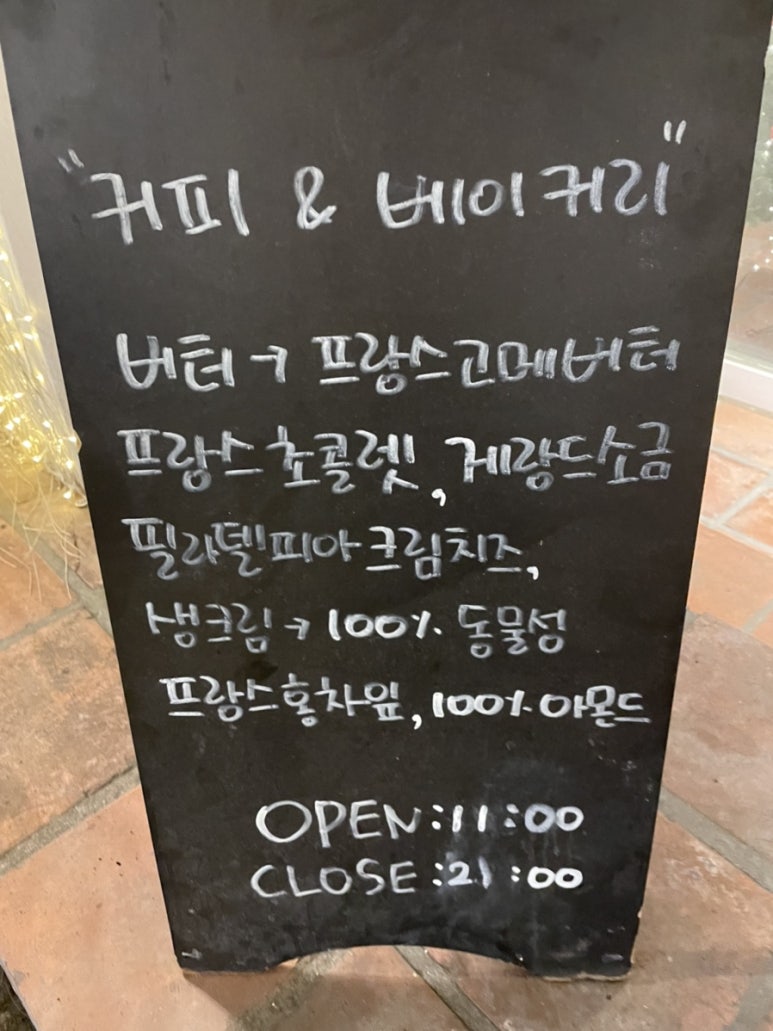 "커피 & 베이커리"
버터→프랑스고메버터
프랑스 초콜렛, 게랑드소금
필라델피아 크림치즈,
생크림→100% 동물성
프랑스홍차잎, 100% 아몬드
OPEN:11:00
CLOSE:21:00